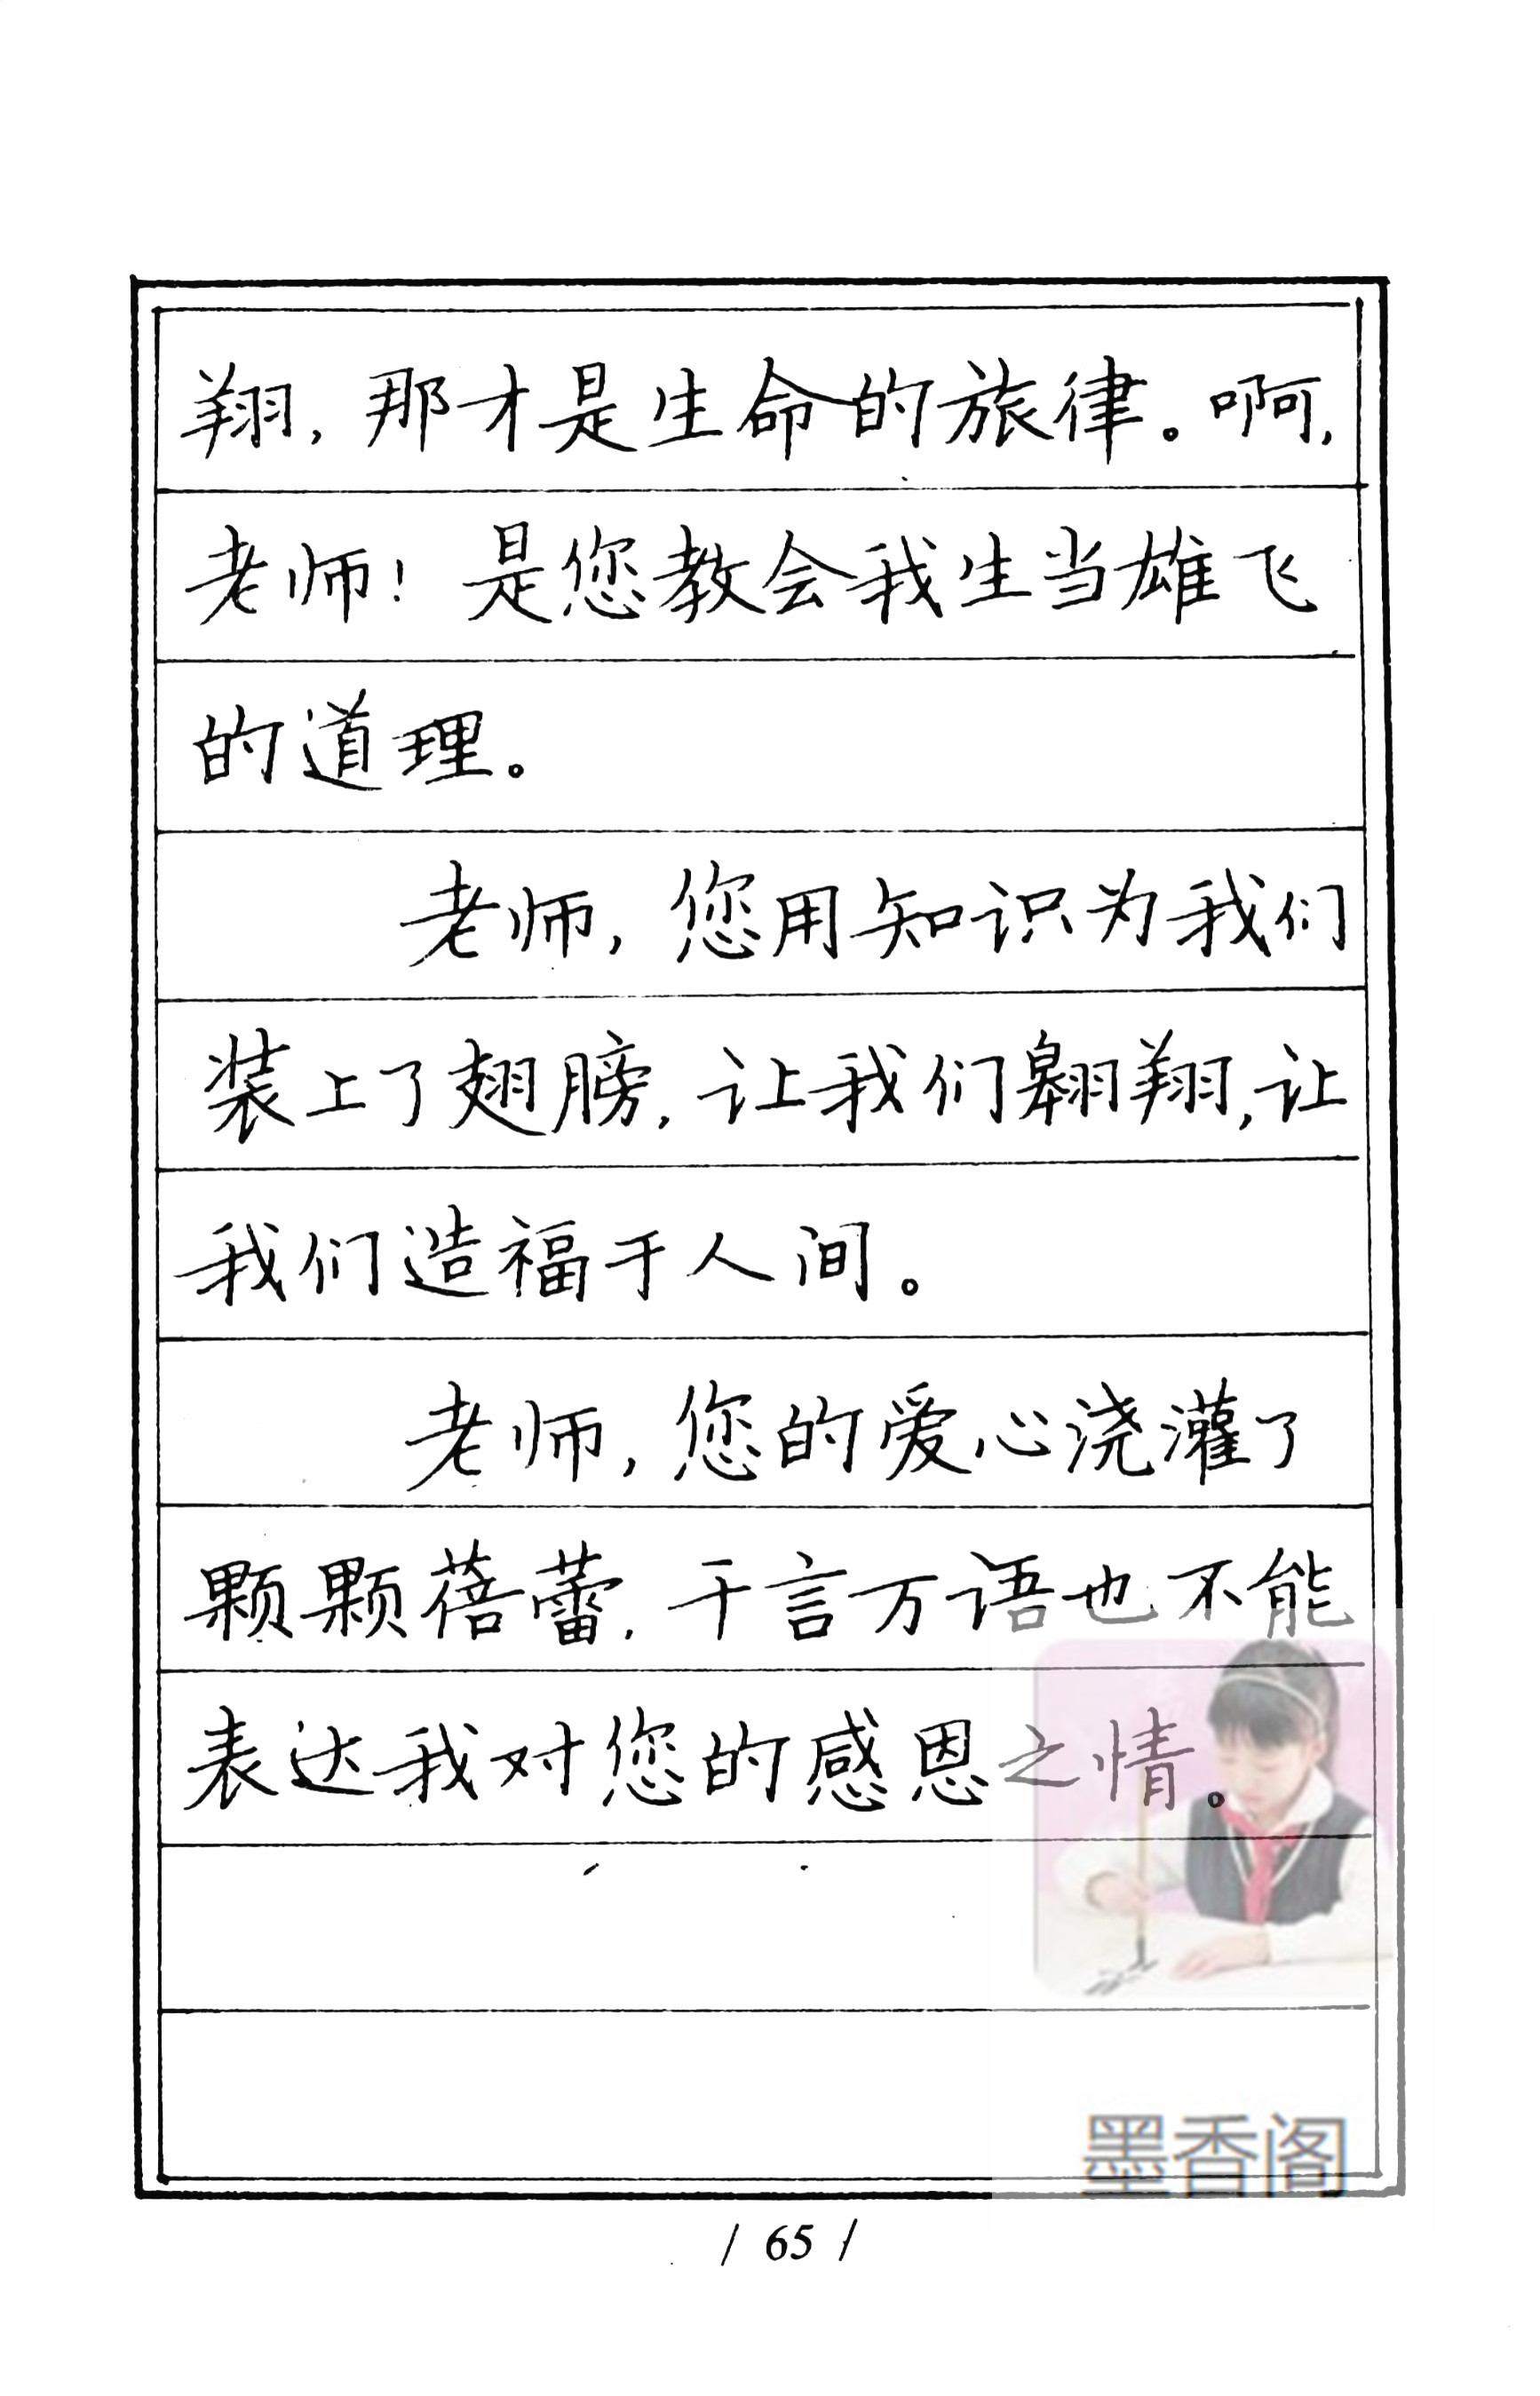 翔，那才是生命的旅律。啊，
老师！是您教会我生当雄飞
的道理。
老师，您用知识为我们
装上了翅膀，让我们翱翔，让
我们造福于人间。
老师，您的爱心浇灌了
颗颗蓓蕾，千言万语也不能
表达我对您的感恩之情。
墨香阁
/ 65 /